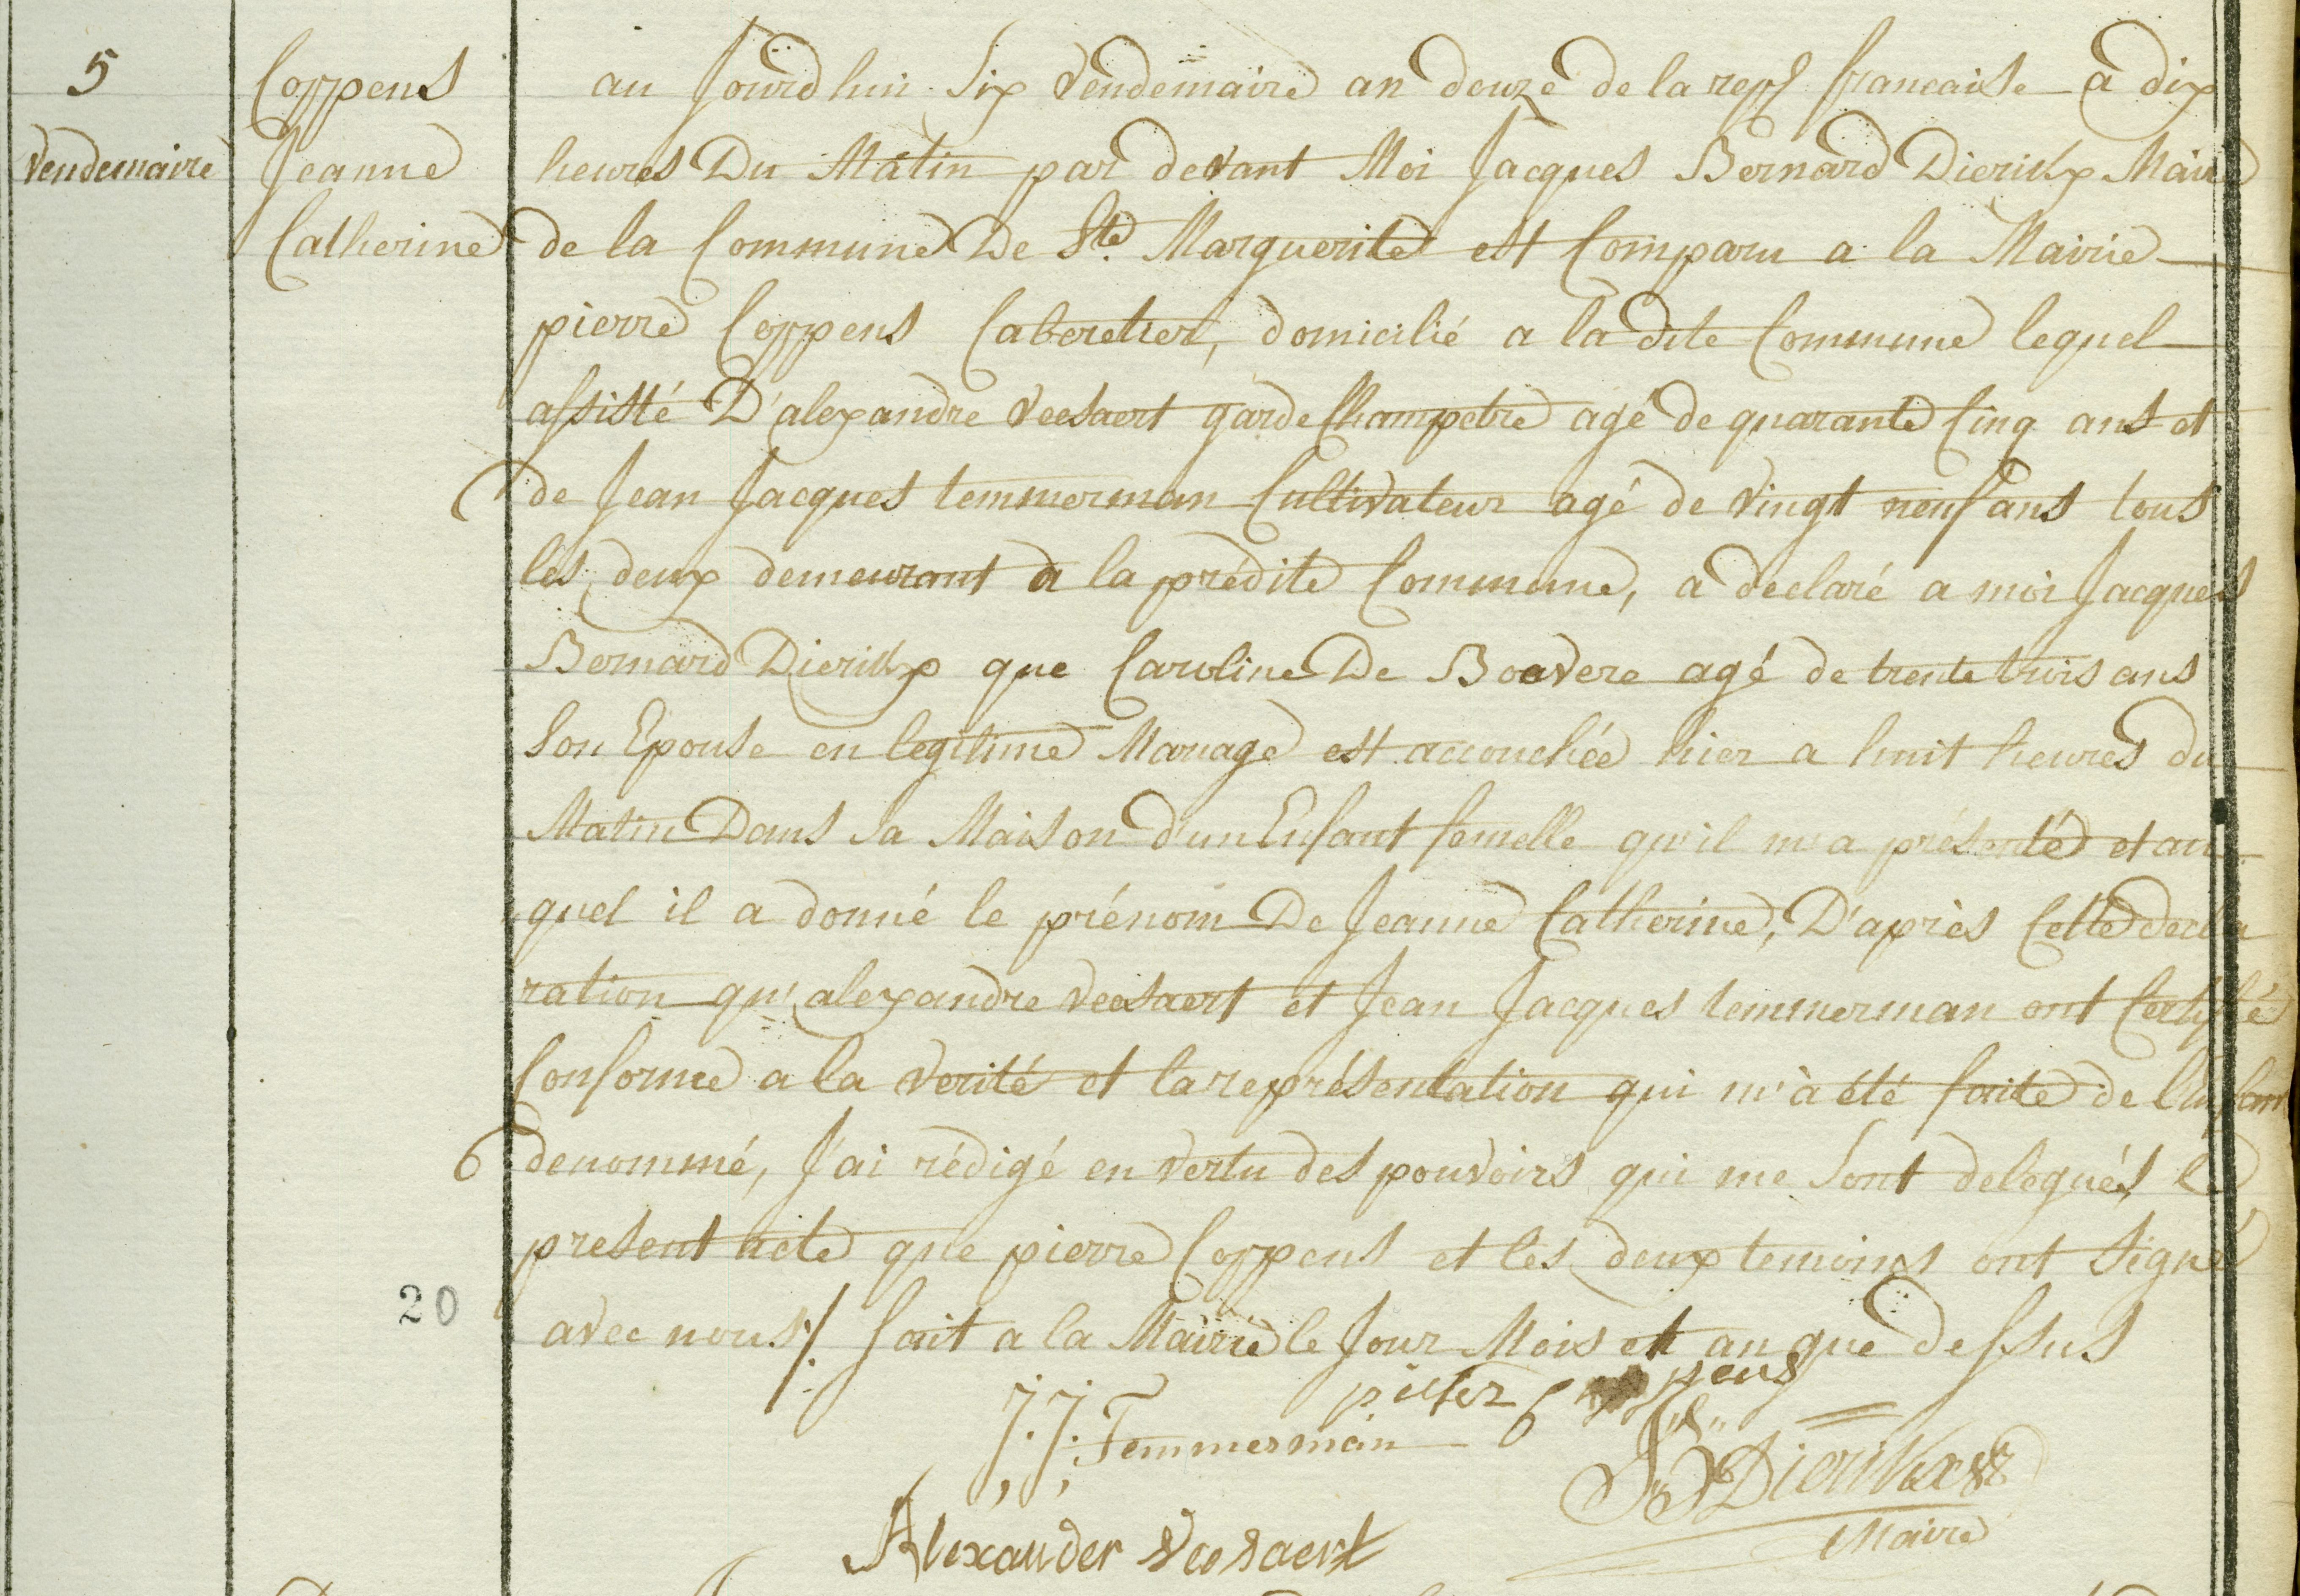 5
Vendemaire
Coppens
Jeanne
Catherine
au Jourdhui Six Vendemaire an douze de la rep. francaise a dix
heures Du Matin par devant Moi Jacques Bernard Dierikx Maire
de la Commune De Ste. Marguerite est Comparu a la Mairie
pierre Coppens Caberetier, domicilié a la dite Commune lequel
assisté D'alexandre Veesaert garde Champetre agé de quarante Cinq ans et
de Jean Jacques temmerman Cultivateur agé de Vingt neuf ans tous
les deux demeurant a la prédite Commune, a declaré a moi Jacques
Bernard Dierikx que Caroline De Boevere agé de trente trois ans
Son Epouse en legitime Mariage est accouchée hier a huit heures du
Matin Dans sa Maison d'un Enfant femelle qu'il m'a présenté et au
quel il a donné le prénom De Jeanne Catherine, D'après Cette decla
ration qu'alexandre Veesaert et Jean Jacques temmerman ont Certifié
Conforme a la Verité et la représentation qui m'à été faite de l'enfant
denommé, J'ai rédigé en Vertu des pouvoirs qui me Sont delegués, le
present acte que pierre Coppens et les deux temoins ont Signé
avec nous ./. fait a la Mairie le Jour Mois et an que dessus
20
pieter Coppens
J: J: Temmerman
J B Dierikx
Maire
Alexander Veesaert